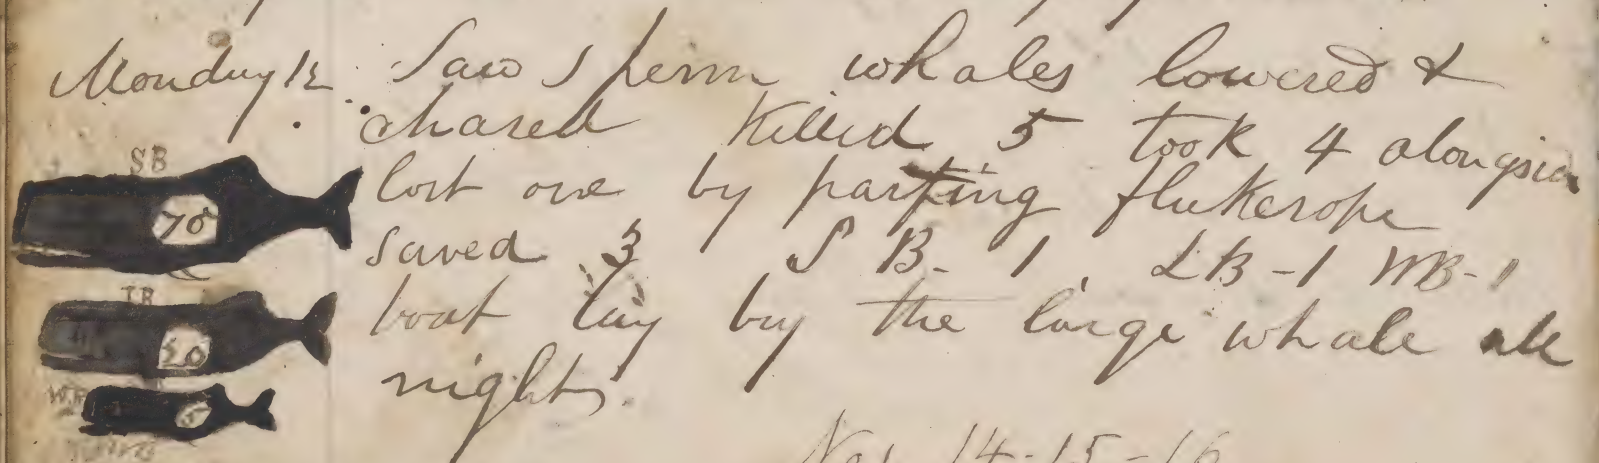 Monday 12 Saw Sperm whales lowered &
chased Killed 5 took 4 alongside
SB
lost one by parting flukerope
70
saved 3 S B. 1. LB-1 WB-1
boat lay by the large whale all
50
night.
W.B
5
14-15-16